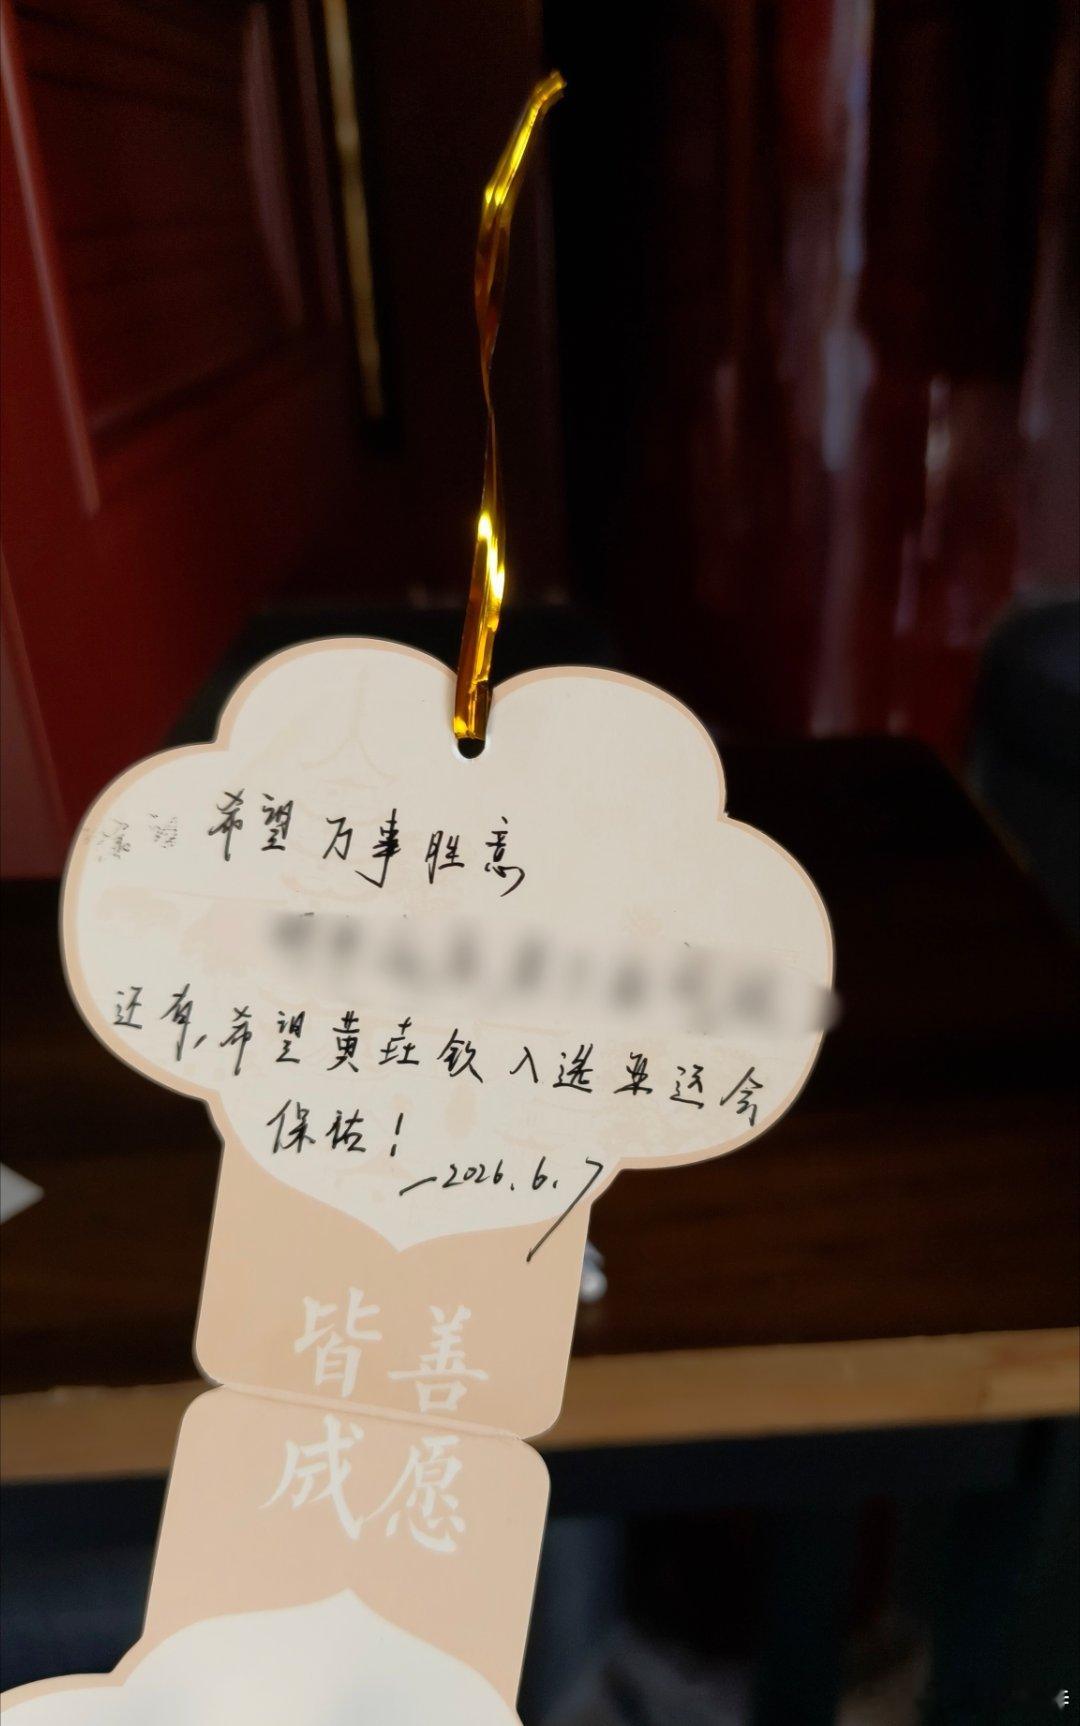 希望万事胜意
还有,希望黄垚钦入选亚运会
保佑!
—2026.6.7
皆善
成愿